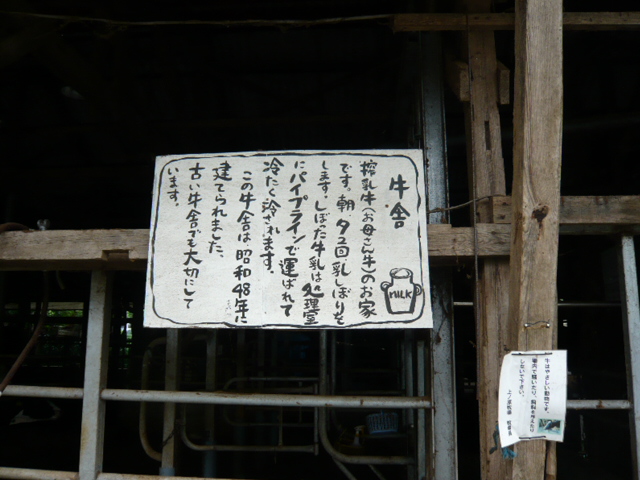 牛舎
搾乳牛(お母さん牛)のお家
です。朝・夕2回乳しぼりを
します。しぼった牛乳は処理室
にパイプラインで運ばれて
冷たく冷やされます。
この牛舎は昭和48年に
建てられました。
古い牛舎でも大切にして
います。
MILK
牛はやさしい動物です。
しないで下さい。